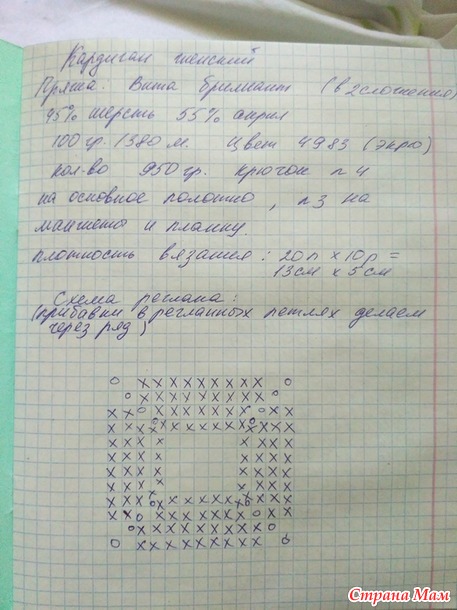 Кардиган женский
Пряжа: Вита бриллиант (в 2 сложения)
45% шерсть 55% акрил
100 гр. /380 м. Цвет 4983 (экрю)
кол-во 950 гр. крючок n 4
на основное полотно, n 3 на
манжеты и планку
плотность вязания: 20 п х 10 р =
13 см х 5 см
Схема реглана:
(прибавки в регланных петлях делаем
через ряд)
Страна Мам